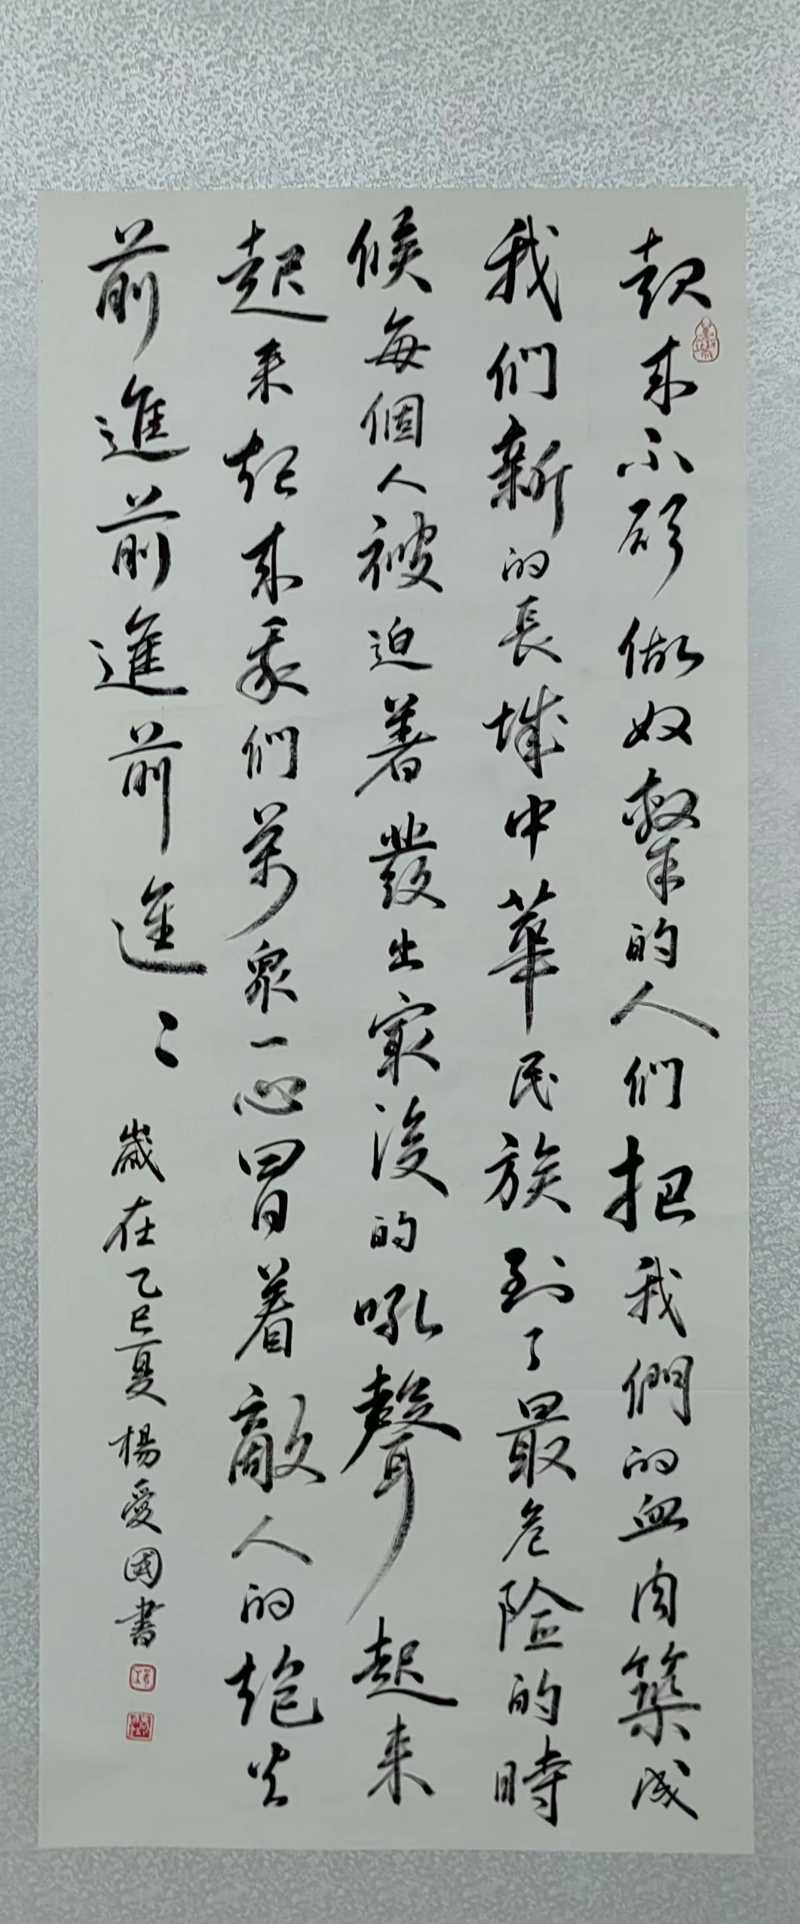 起来不願做奴隸的人们把我們的血肉築成
我们新的長城中華民族到了最危险的時
候每個人被迫著發出最後的吼聲起来
起来起来我们萬衆一心冒着敵人的炮火
前進前進前進〻
歲在乙巳夏楊愛國書